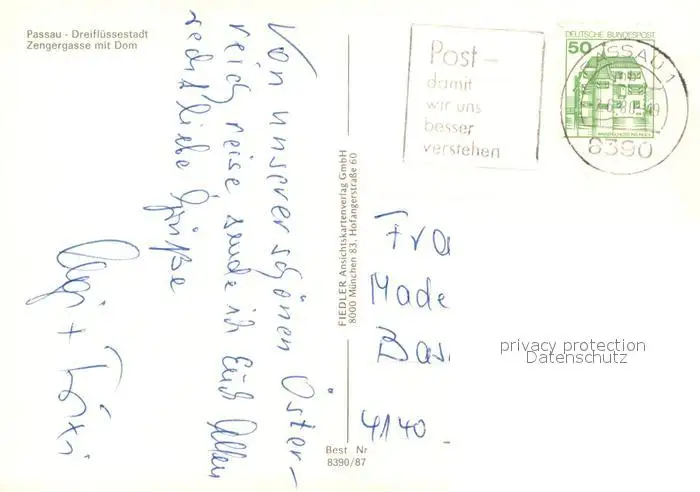 Passau - Dreiflüssestadt
Zengergasse mit Dom
Von unserer schönen Öster-
reich reise sende ich Euch Allen
recht liebe Grüße
FIEDLER Ansichtskartenverlag GmbH
8000 München 83. Hofangerstraße 60
Best Nr
8390/87
Post -
damit
wir uns
besser
verstehen
DEUTSCHE BUNDESPOST
50
PASSAU 1
8390
Fra
Made
Bas
4140
privacy protection
Datenschutz